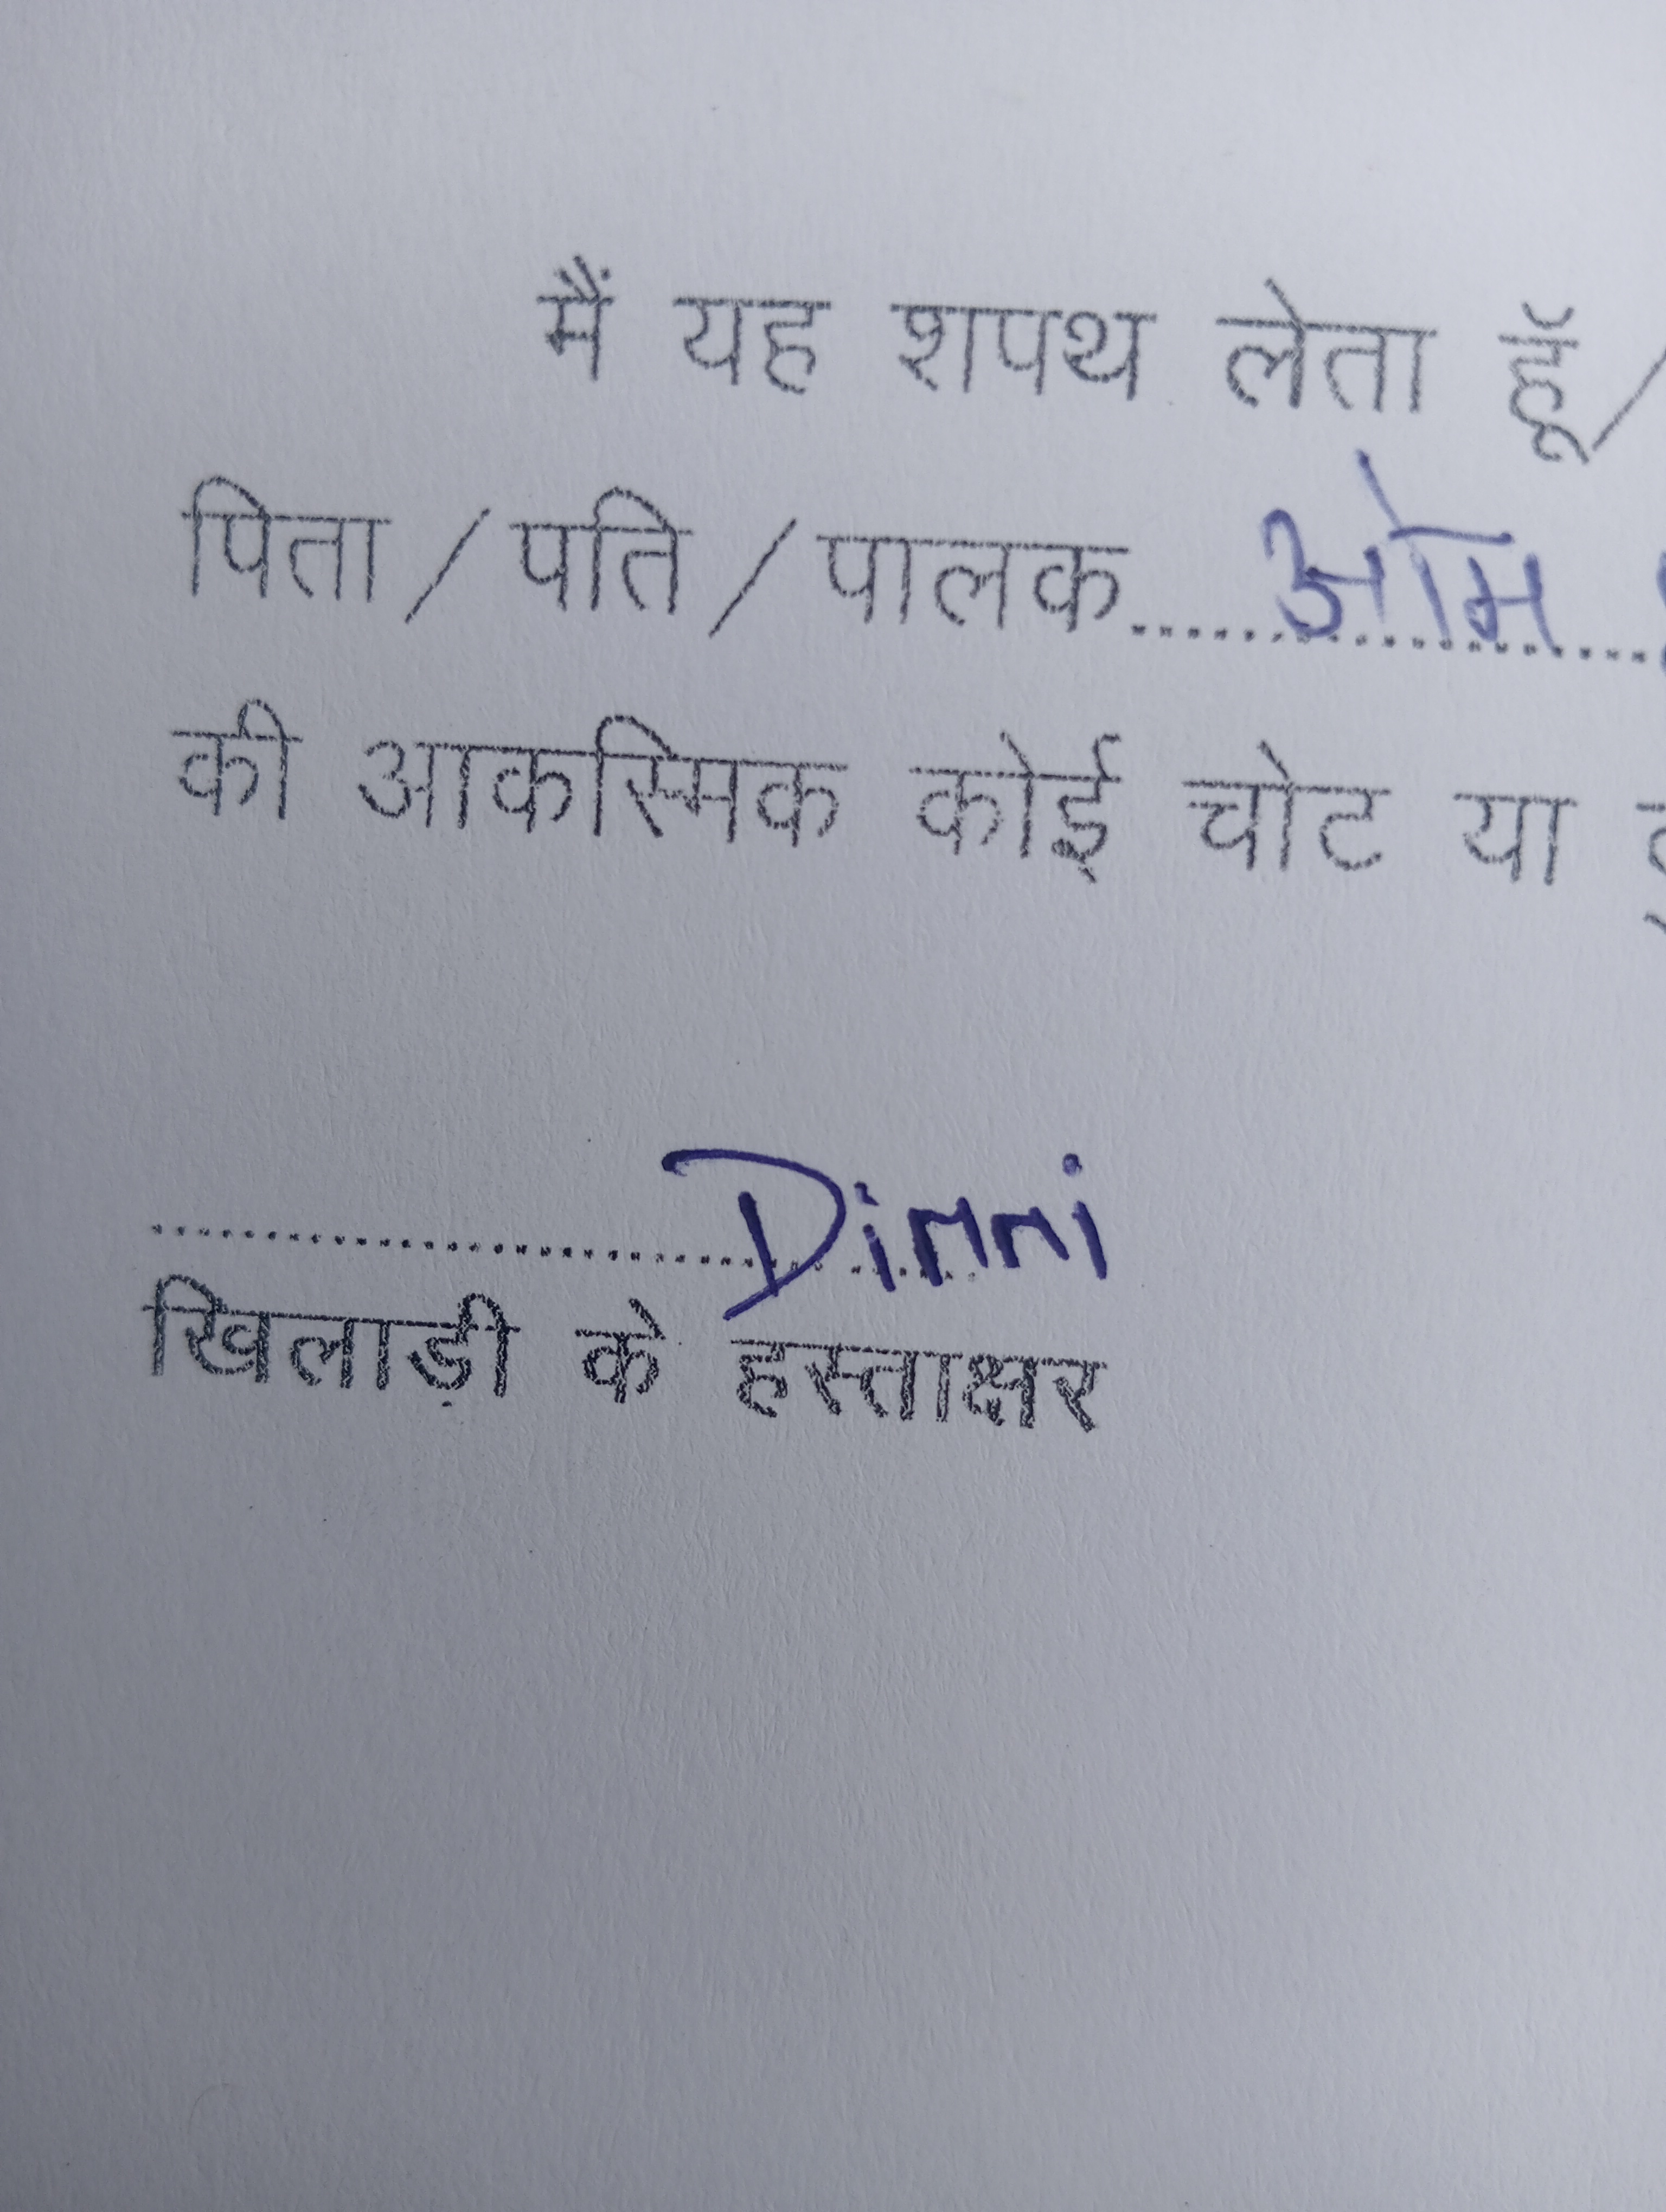 मैं यह शपथ लेता हूॅ/
पिता/पति/पालक..........ओम..........
की आकस्मिक कोई चोट या
Dinni
खिलाड़ी के हस्ताक्षर